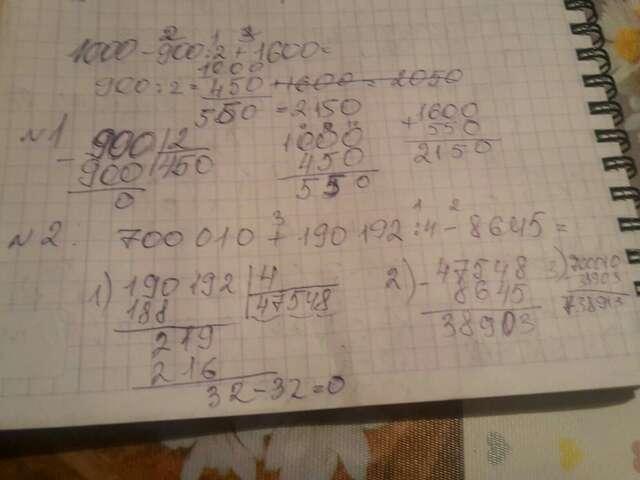 2 1 3
1000 - 900 : 2 + 1600 =
1000
900 : 2 = 450 + 1600 = 2050
550 = 2150
№1
- 900 | 2
900 | 450
0
1000
450
550
+ 1600
550
2150
№2. 700 010 + 190 192 : 4 - 8645 =
3 1 2
1) 190 192 | 4
188 | 47548
219
216
32 - 32 = 0
2) - 47548
8645
38903
3) 700010
38903
738913